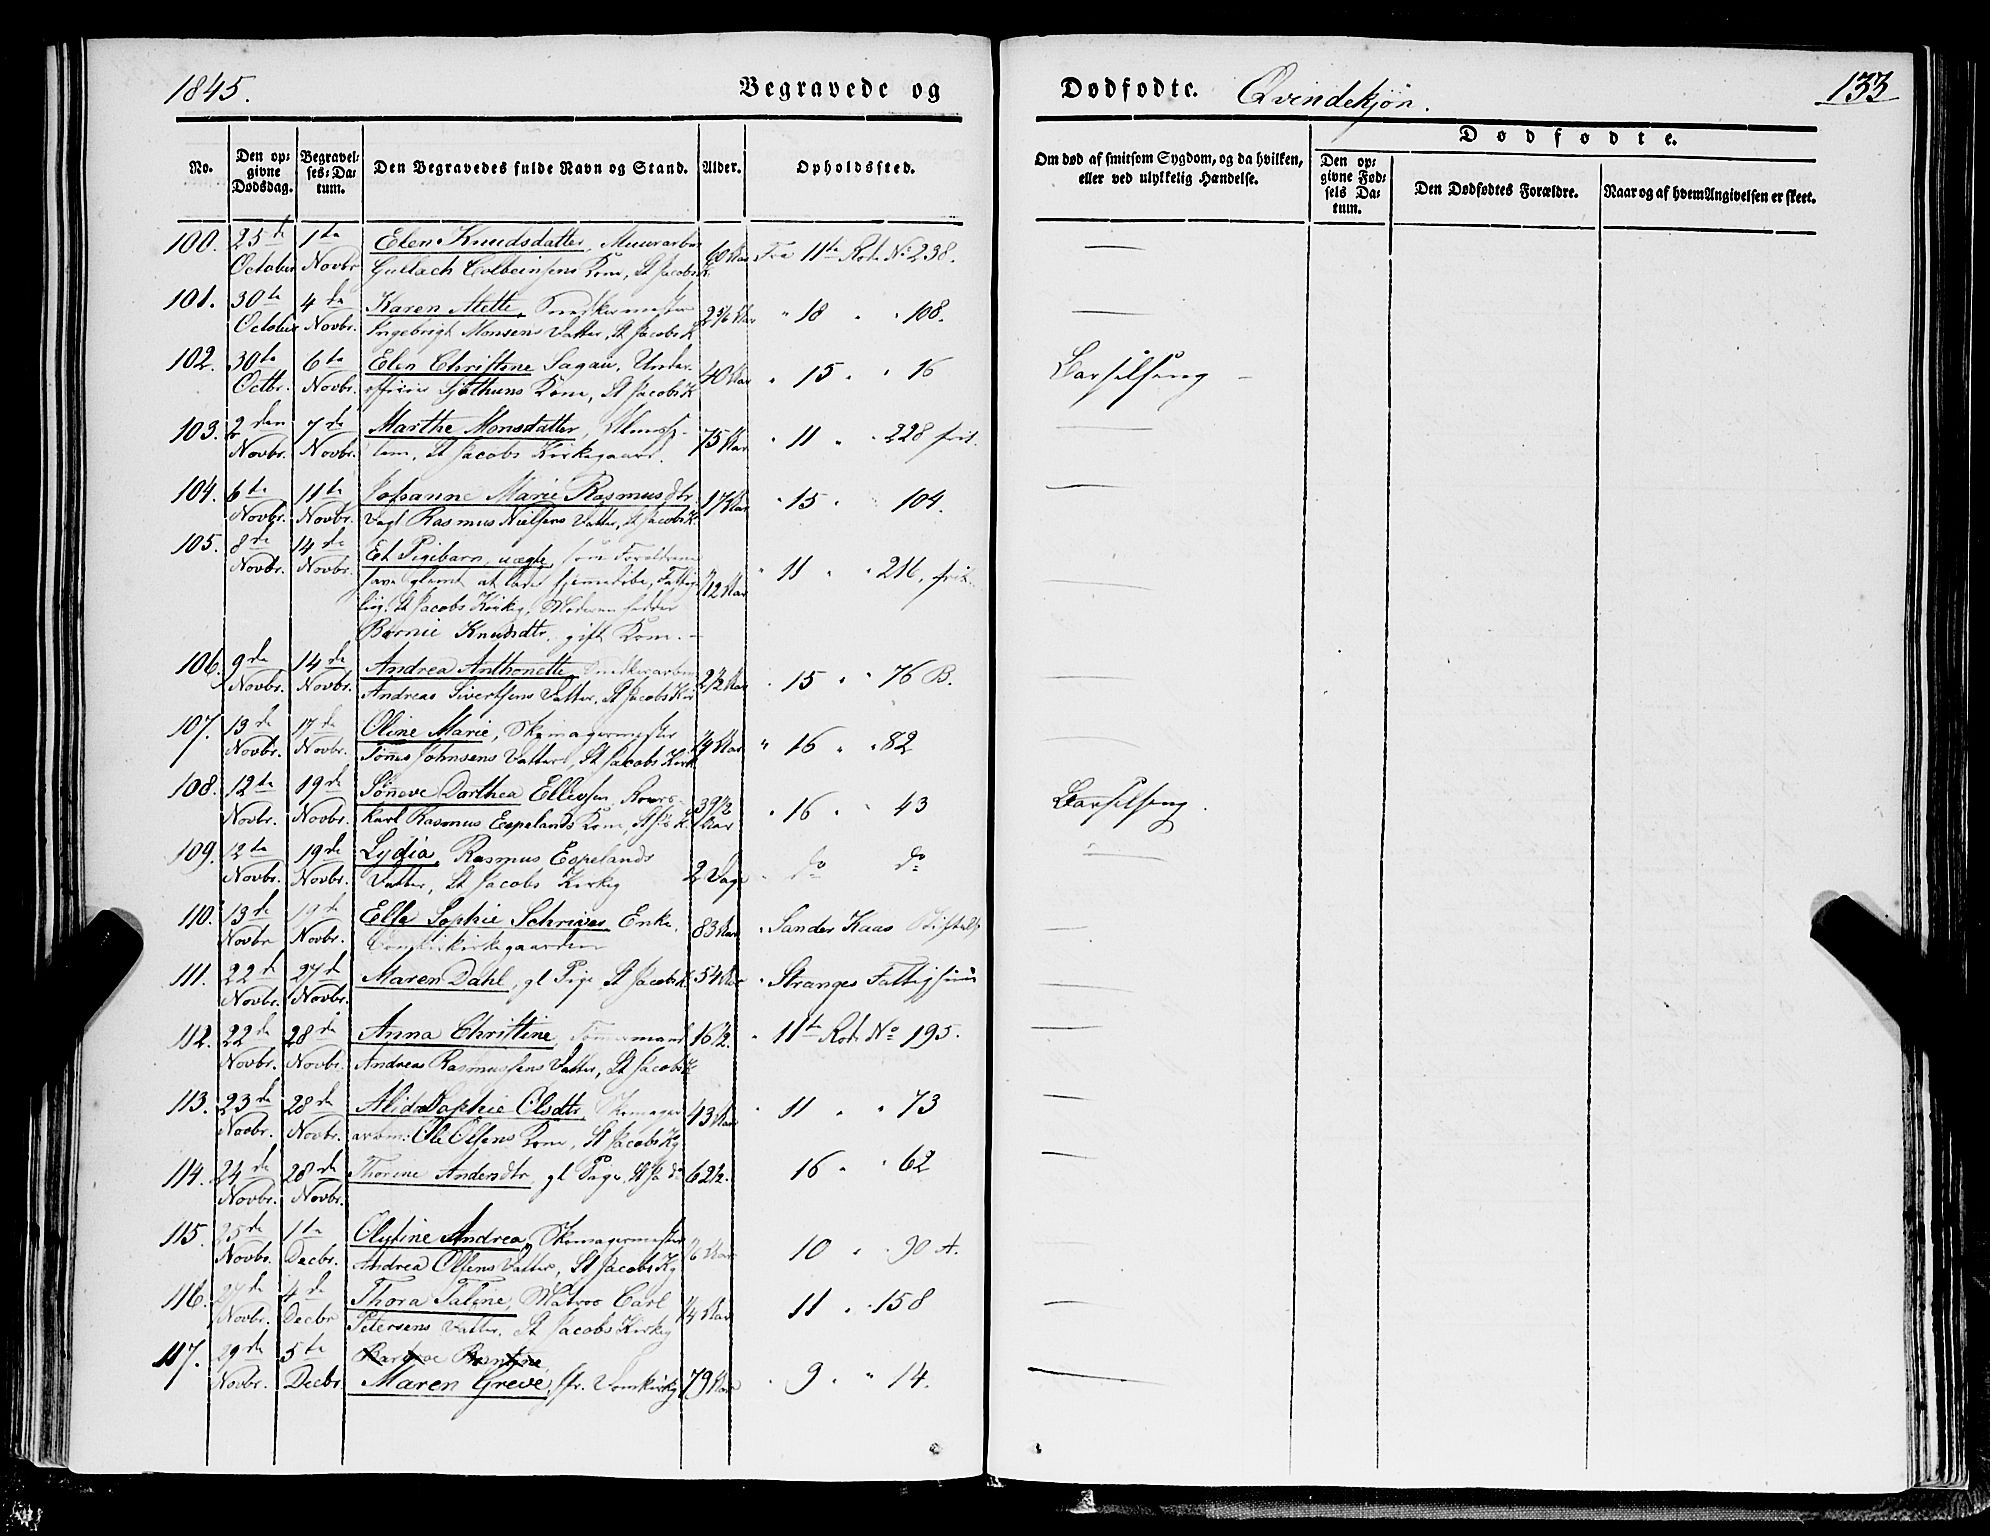 1845.
Begravede og
Dødfødte. Qvindekjøn.
133
No.
Den opgivne Dødsdag.
Begravelses-Datum.
Den Begravedes fulde Navn og Stand.
Alder.
Opholdssted.
Om død af smitsom Sygdom, og da hvilken, eller ved ulykkelig Hændelse.
Dødfødte.
Den opgivne Fødsels Datum.
Den Dødfødtes Forældre.
Naar og af hvem Angivelsen er skeet.
100. 25de 1te Elen Knudsdatter, Muurarb 60 Aar Fra 11te Rode No 238.
October Novbr Gullach Colbeinsens Kone, St Jacobs K.
101. 30te 4de Karen Mette, Snedkermester 2 Aar " 18 " " 108.
October Novbr. Ingebrigt Monsens Datter, St Jacobs K
102. 30te 6te Elen Christine Sagau, Under- 40 Aar " 15 " " 16 Barselseng
Octbr. Novbr. officier Kone, St Jacobs K
103. 2den 7de Marthe Monsdatter, Almisse- 75 Aar " 11 " " 228 frit.
Novbr. Novbr. lem, St Jacobs Kirkegaard.
104. 6te 11te Johanne Marie Rasmusdtr 17 Aar " 15 " 104.
Novbr. Novbr. Vægt Rasmus Nielsens Datter, St Jacobs K
105. 8de 14de Et Pigebarn, uægte, som Forældrene
Novbr. Novbr. have glemt at lade hjemmedøbe, 1/12 Aar " 11 " " 216, frit.
St Jacobs Kirkeg. Moderen hedder
Bernie Knudsdtr. gift Kone. –
106. 9de 14de Andrea Anthonette, Snedkerarb 2½ Aar " 15 " " 76 B.
Novbr. Novbr. Andreas Sivertsens Datter, St Jacobs Kir
107. 13de 17de Oline Marie, Skomagermester ¼ Aar " 16 " " 82
Novbr. Novbr. Tönnes Johnsens Datter, St Jacobs Kirk
108. 12te 19de Sönneve Dorthea Ellevsen, 39½ " 16 " 43 Barselseng.
Novbr. Novbr. karl Rasmus Espelands Kone, St K. Aar
109. 12te 19de Lydia, Rasmus Espelands 2 Dage " do do
Novbr. Novbr. Datter, St Jacobs Kirkeg
110. 13de 19de Else Sophie Schriver Enke, 83 Aar " Sander Kaas Stiftelse
Novbr Novbr. Domkirkegaarden
111. 22de 27de Maren Dahl, gl Pige St Jacobs K. 54 Aar " Stranges Fattighuus
Novbr. Novbr.
112. 22de 28de Anna Christine, Tömmermand 16½. " 11te Rode No 195.
Novbr. Novbr. Andreas Rasmussens Datter, St Jacobs K
113. 23de 28de Alida Sophie Olsdtr, Skomager 43 Aar " 11 " " 73
Novbr. Novbr. arbm: Ole Olsens Kone, St Jacobs Kg
114. 24de 28de Thorine Andersdtr, gl Pige, St Ja do 62½. 16 " " 62
Novbr. Novbr.
115. 25de 1te Olytine Andrea, Skomagermester 1/6 Aar 10 " " 90 A.
Novbr. Decbr. Andrea Olsens Datter, St Jacobs Kg
116. 27de 4de Thora Taline, Matros Carl ¼ Aar 11 " " 158
Novbr. Decbr Petersens Datter, St Jacobs Kirkeg
117. 29de 5te
Novbr. Decbr Maren Greve, fr. Domkirkg 79 Aar " 9 " " 14.